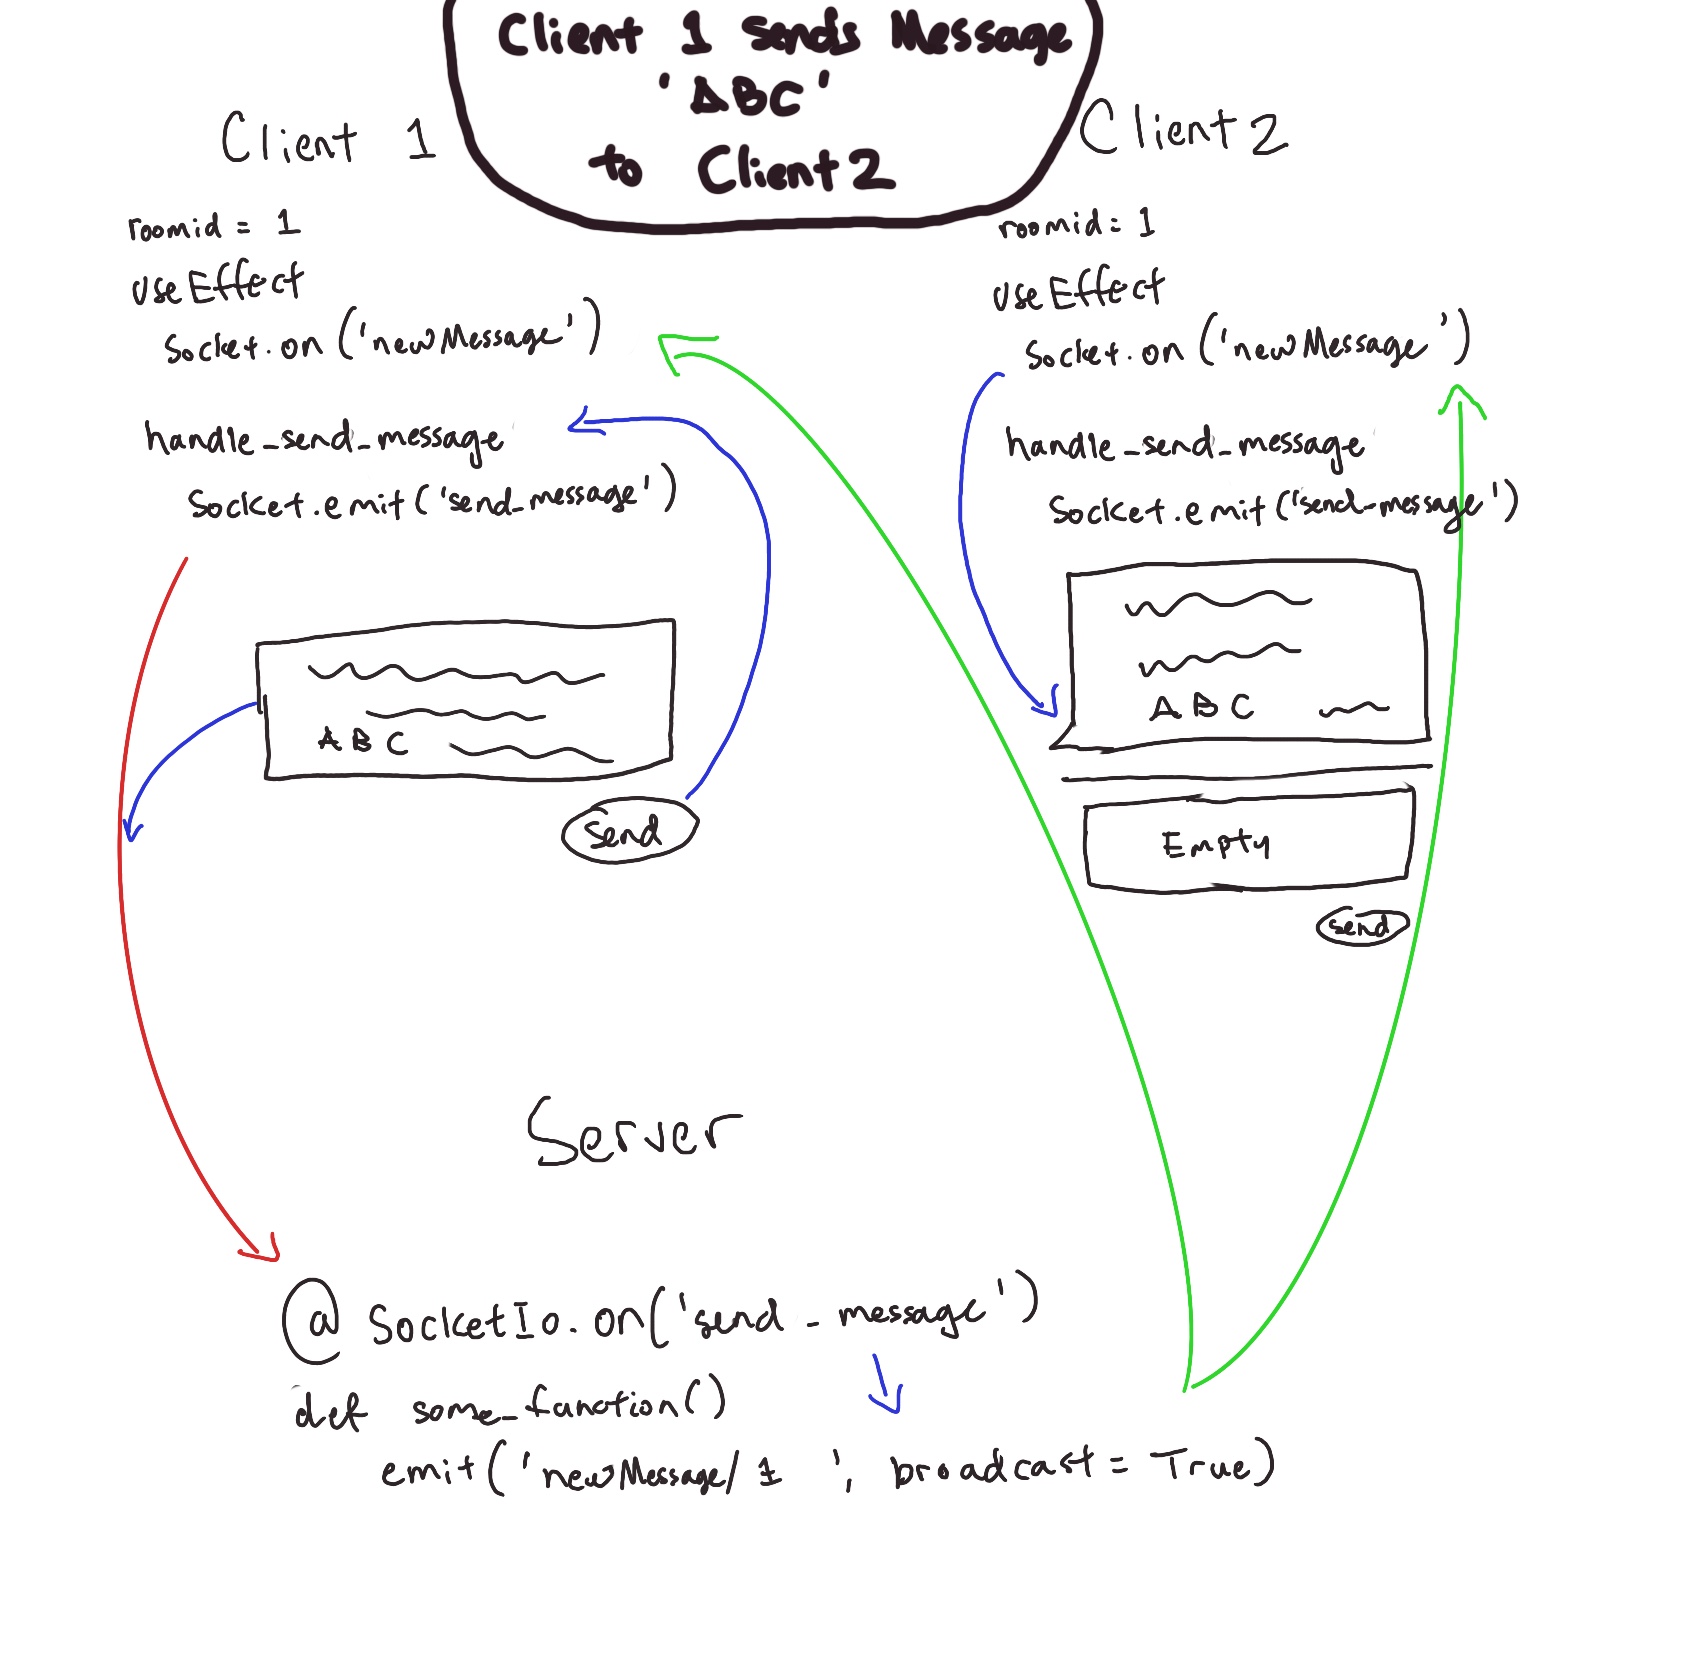 Client 1 Sends Message
'ABC'
to Client 2
Client 1
roomid = 1
useEffect
Socket.on('newMessage')
handle_send_message
Socket.emit('send_message')
ABC
Send
Client 2
roomid: 1
useEffect
Socket.on('newMessage')
handle_send_message
Socket.emit('send-message')
ABC
Empty
send
Server
@SocketIo.on('send_message')
def some_function()
emit('newMessage/1 ', broadcast = True)